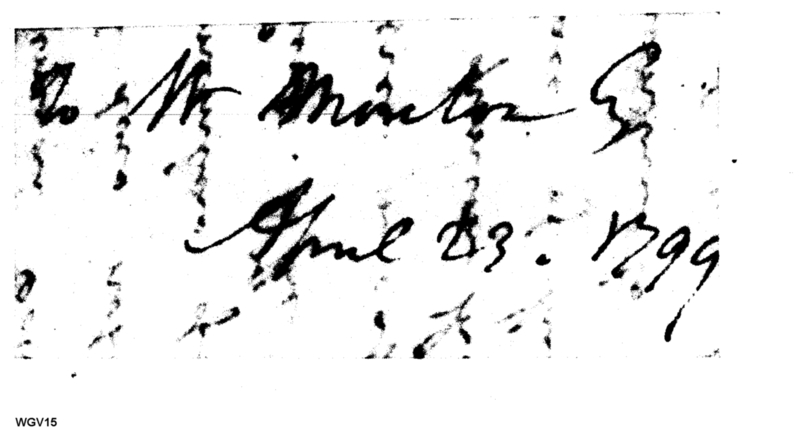 To W Moncton Esq
April 23. 1799
WGV15